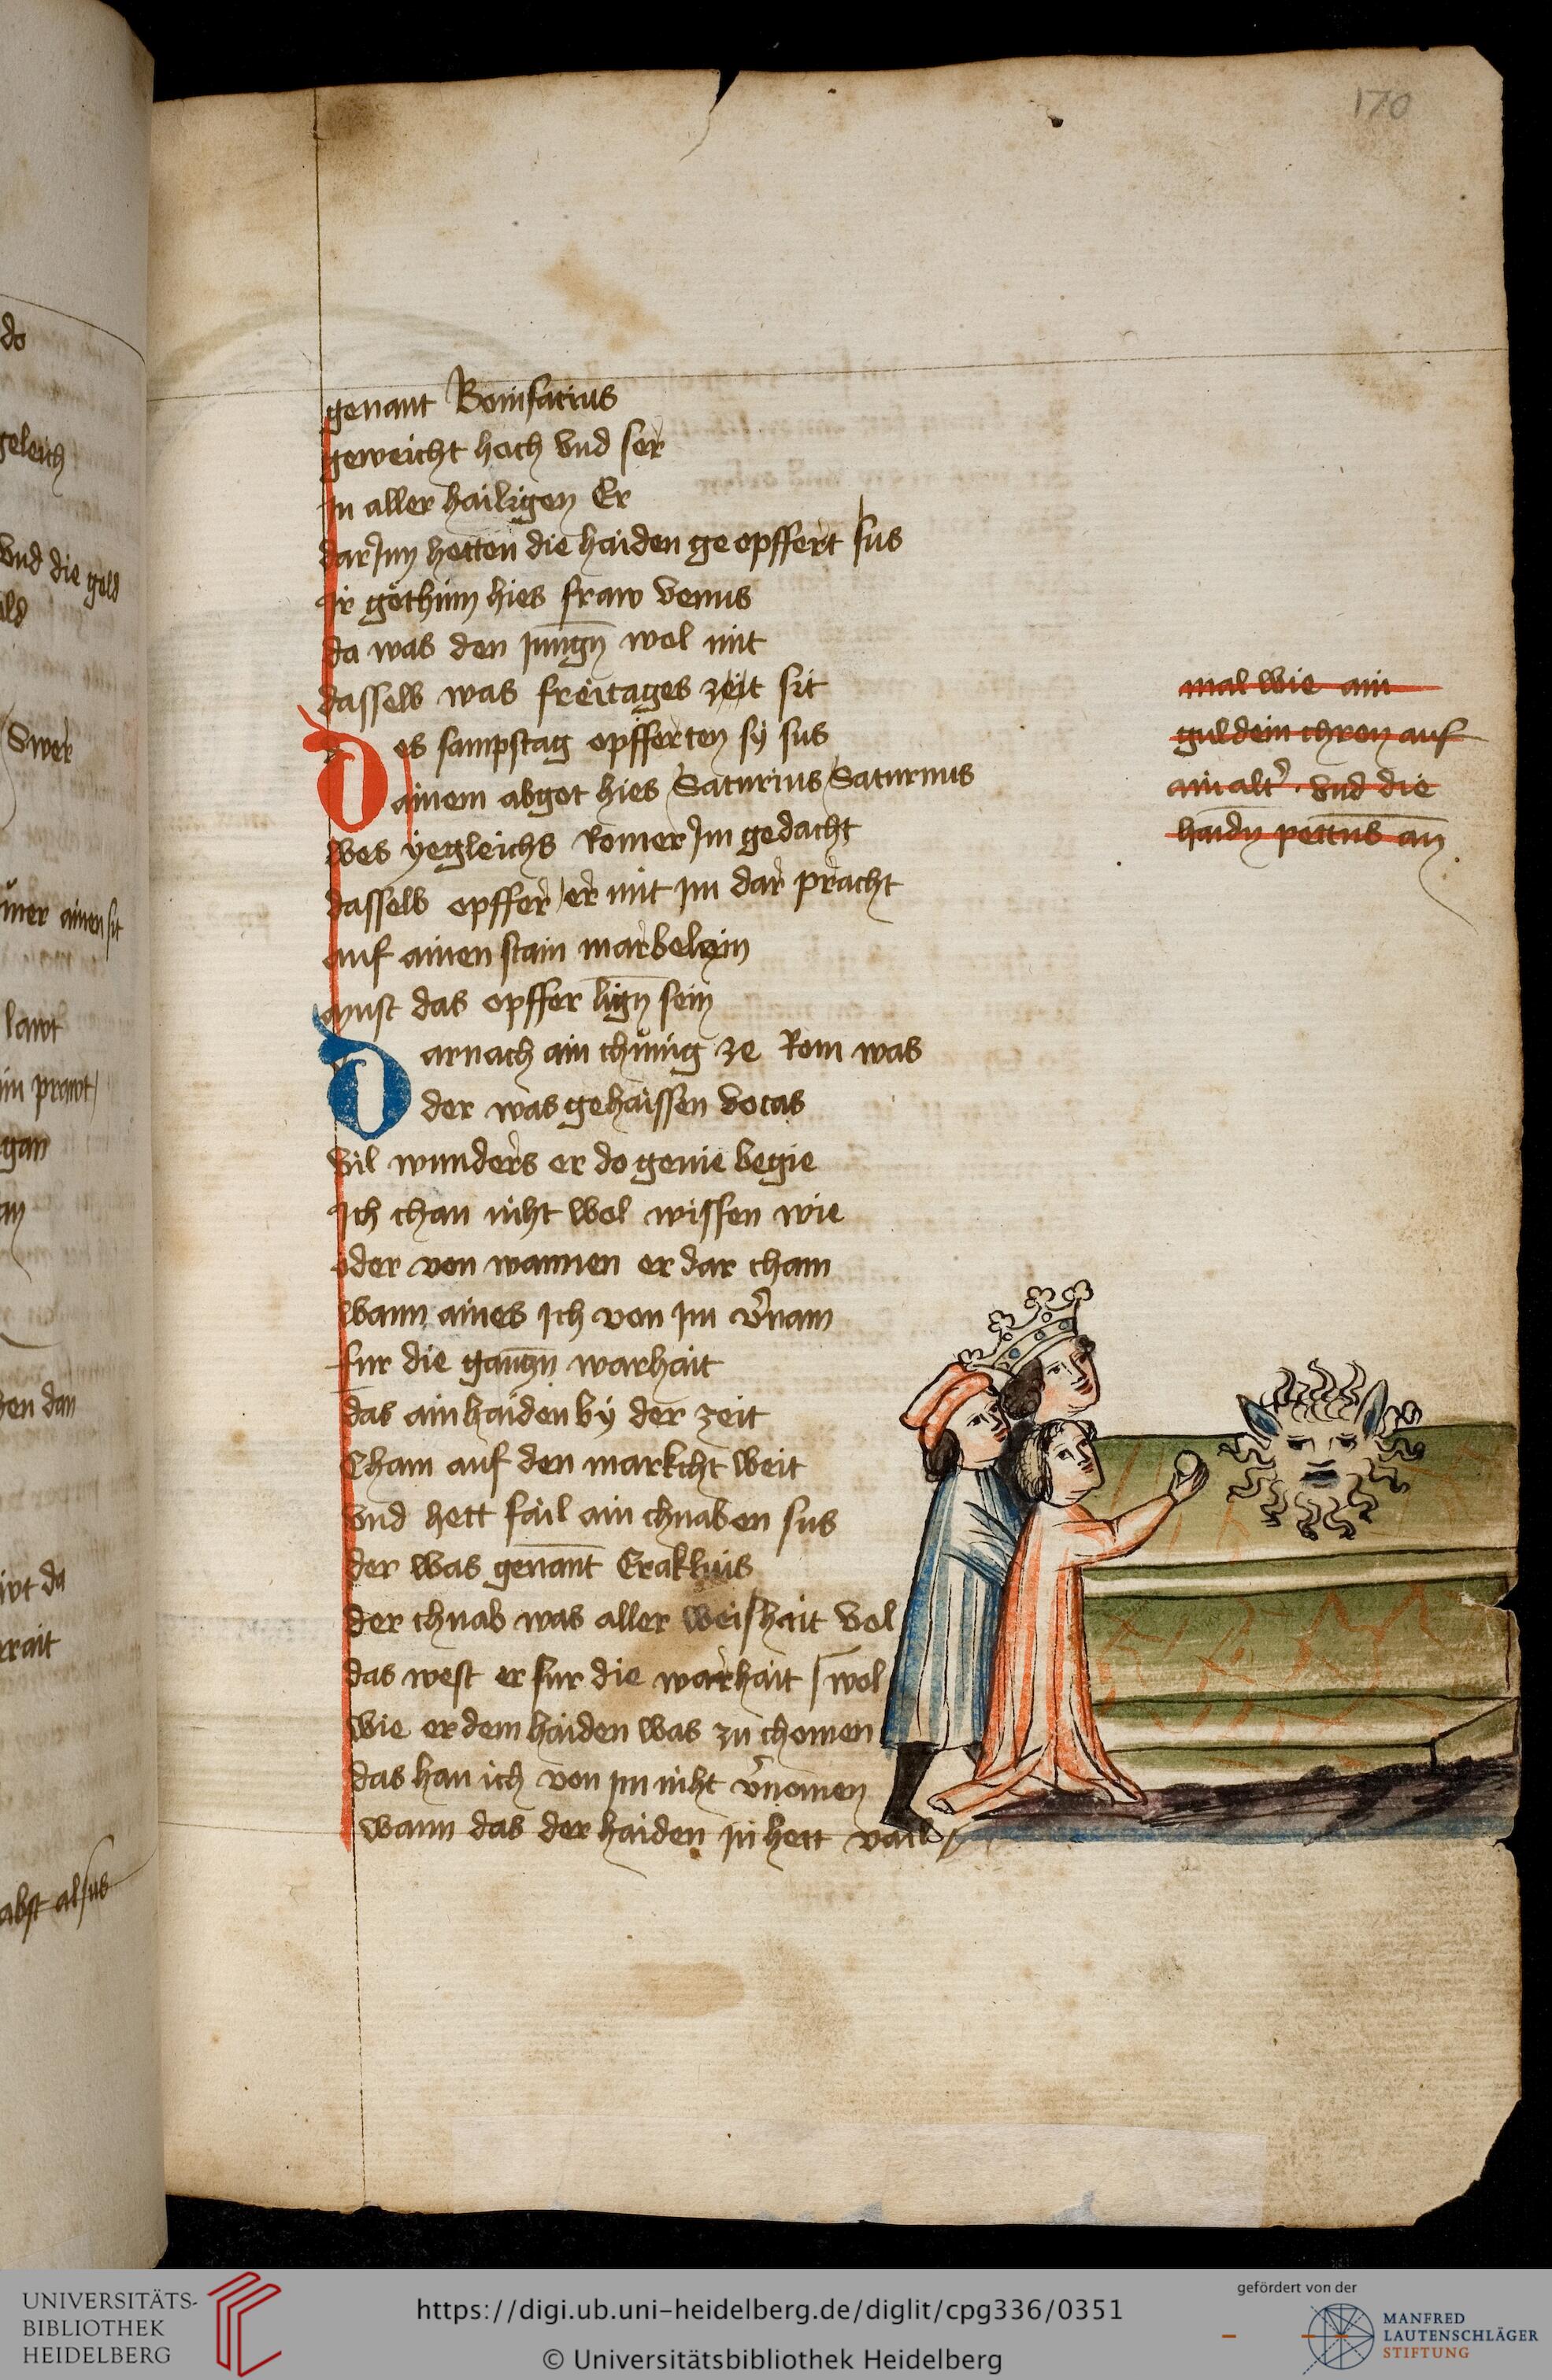 170
genant Bonifacius
geweicht hoch vnd ser
In aller hailigen Er
dar Inn hetten die haiden geopffert sus
Ir göthinn hies fraw venus
da was den Jungn̄ wol mit
dasselb was freitages zeit sit
Des sampstag opfferten sÿ sus
ainem abgot hies Saturius Saturnus
wes yegleichs Romer Im gedacht
dasselb opffer er mit im dar pracht
auf ainen stain marbelein
must das opffer lign̄ sein
Darnach ain chünig ze Rom was
der was gehaissen vocas
vil wunders er do genie begie
Ich chan niht wol wissen wie
oder von wannen er dar cham
wann aines Ich von Im v'nam
fur die gantzn̄ warhait
das ain haiden bÿ der zeit
Cham auf den markcht weit
vnd hett fail ain chnaben sus
der was genant Eraklius
der chnab was aller weishait vol
das west er fur die warhait wol
wie er dem haiden was zu chomen
das han ich von im niht v'nomen
wann das der haiden in hett vail
mal wie ain
guldein chron auf
ain alt' vnd die
haidn pettns an
do
geleich
vnd die gold
Swer
ainen sit
lawt
prawt
gan
rait
abst alsus
UNIVERSITÄTS-
BIBLIOTHEK
HEIDELBERG
https://digi.ub.uni-heidelberg.de/diglit/cpg336/0351
© Universitätsbibliothek Heidelberg
gefördert von der
MANFRED
LAUTENSCHLÄGER
STIFTUNG